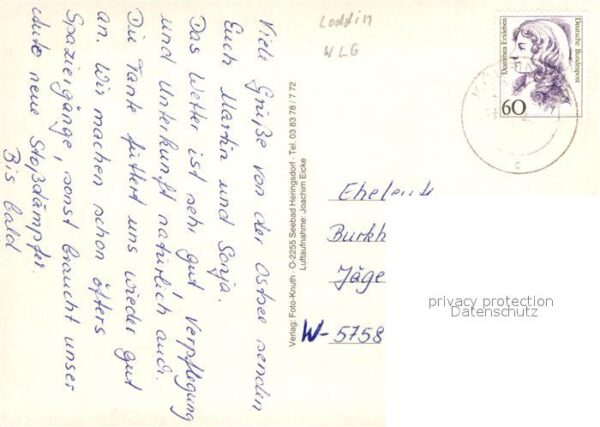 Loddin
WLG
Dorothea Erxleben
Deutsche Bundespost
60
Viele Grüße von der Ostsee senden
Euch Martin und Sonja.
Das Wetter ist sehr gut, Verpflegung
und Unterkunft natürlich auch.
Die Tante füttert uns wieder gut
an. Wir machen schon öfters
Spaziergänge, sonst braucht unser
Auto neue Stoßdämpfer.
Bis bald
Verlag: Foto-Knuth O-2255 Seebad Heringsdorf · Tel. 03 83 78 / 7 72
Luftaufnahme: Joachim Eicke
Eheleute
Burkh
Jäge
W-5758
privacy protection
Datenschutz